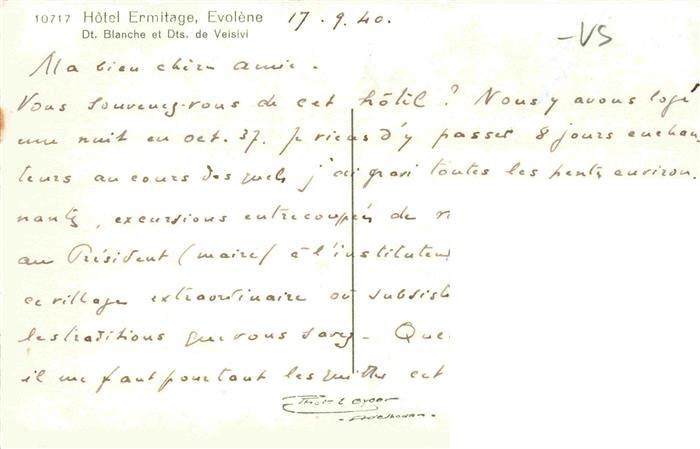 10717 Hôtel Ermitage, Evolène 17.9.40.
Dt. Blanche et Dts. de Veisivi
-VS
Ma bien chère amie.
Vous souvenez-vous de cet hôtel ? Nous y avons logé
une nuit en oct. 37. Je viens d'y passer 8 jours enchan
teurs au cours desquels j'ai gravi toutes les pentes environ.
nantes, excursions entrecoupées de
au Président (maire) à l'instituteu
ce village extraordinaire où subsist
les traditions que vous savez - Que
il me faut pourtant les quitter cet